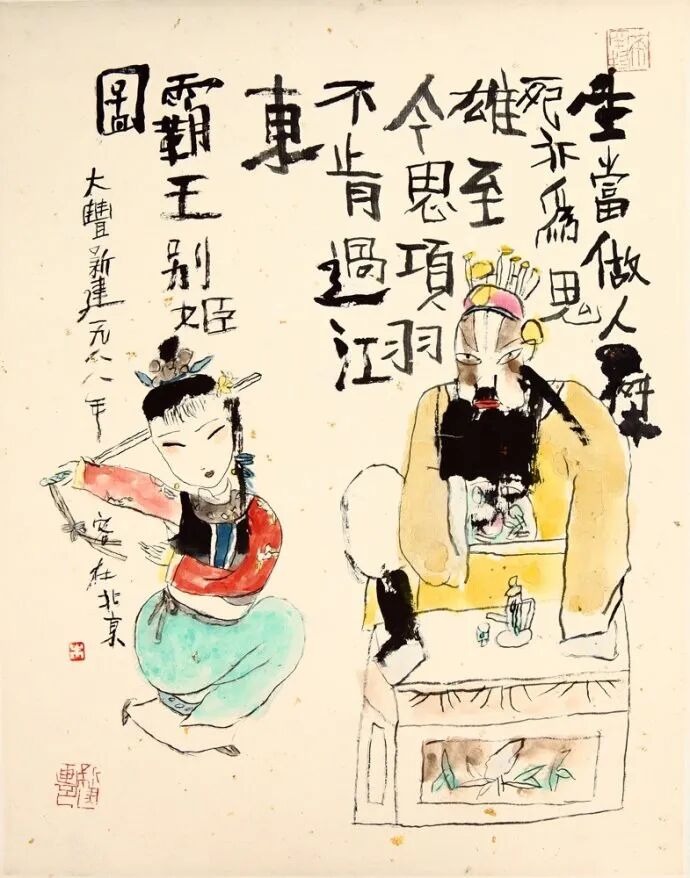 生當做人
死亦為鬼
雄至
今思項羽
不肯過江
東
霸王别姬
圖
大豐新建一九八八年
客在北京